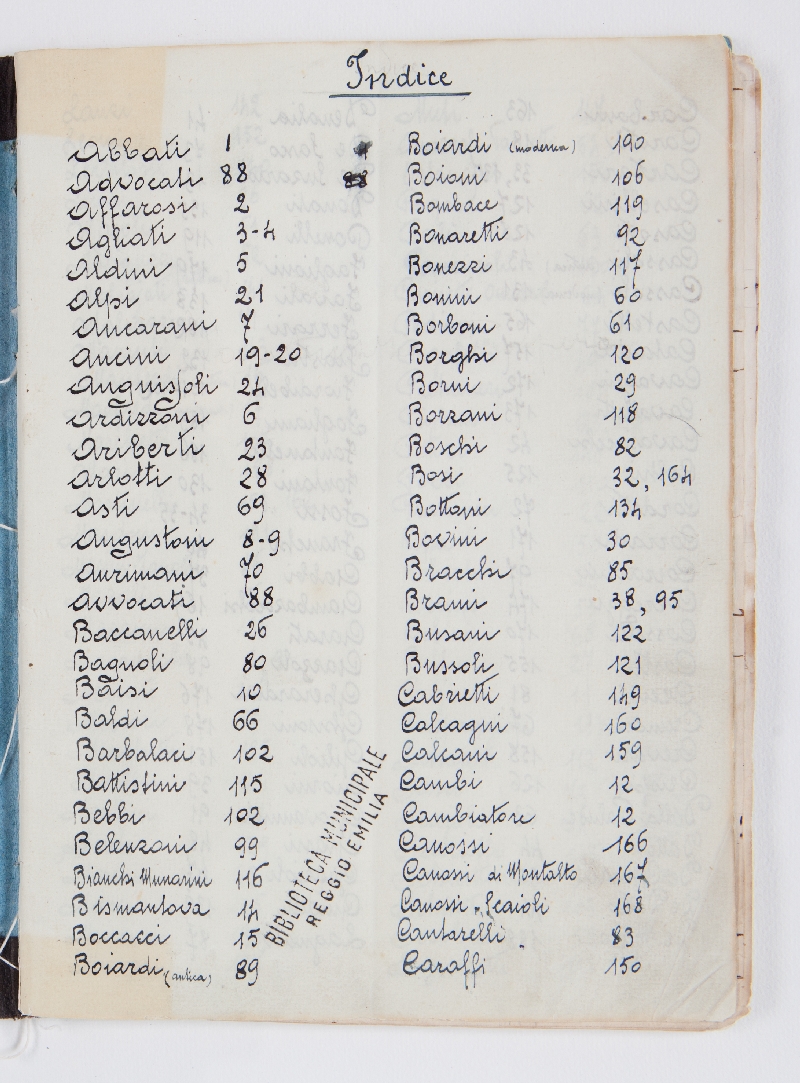 Indice
Abbati 1
Advocati 88
Affarosi 2
Agliati 3-4
Aldini 5
Alpi 21
Ancarani 7
Ancini 19-20
Anguissoli 24
Ardizzoni 6
Ariberti 23
Arlotti 28
Asti 69
Augustoni 8-9
Aurimani 70
Avvocati 88
Baccanelli 26
Bagnoli 80
Baisi 10
Baldi 66
Barbalaci 102
Battistini 115
Bebbi 102
Belenzoni 99
Bianchi Munarini 116
Bismantova 14
Boccacci 15
Boiardi (antica) 89
Boiardi (moderna) 190
Boioni 106
Bombace 119
Bonaretti 92
Bonezzi 117
Bonini 60
Borboni 61
Borghi 120
Borni 29
Borzani 118
Boschi 82
Bosi 32, 164
Bottoni 134
Bovini 30
Bracchi 85
Brami 38, 95
Busani 122
Bussoli 121
Cabrietti 149
Calcagni 160
Calcani 159
Cambi 12
Cambiatore 12
Canossi 166
Canossi di Montalto 167
Canossi-Scaioli 168
Cantarelli 83
Caraffi 150
BIBLIOTECA MUNICIPALE
REGGIO EMILIA